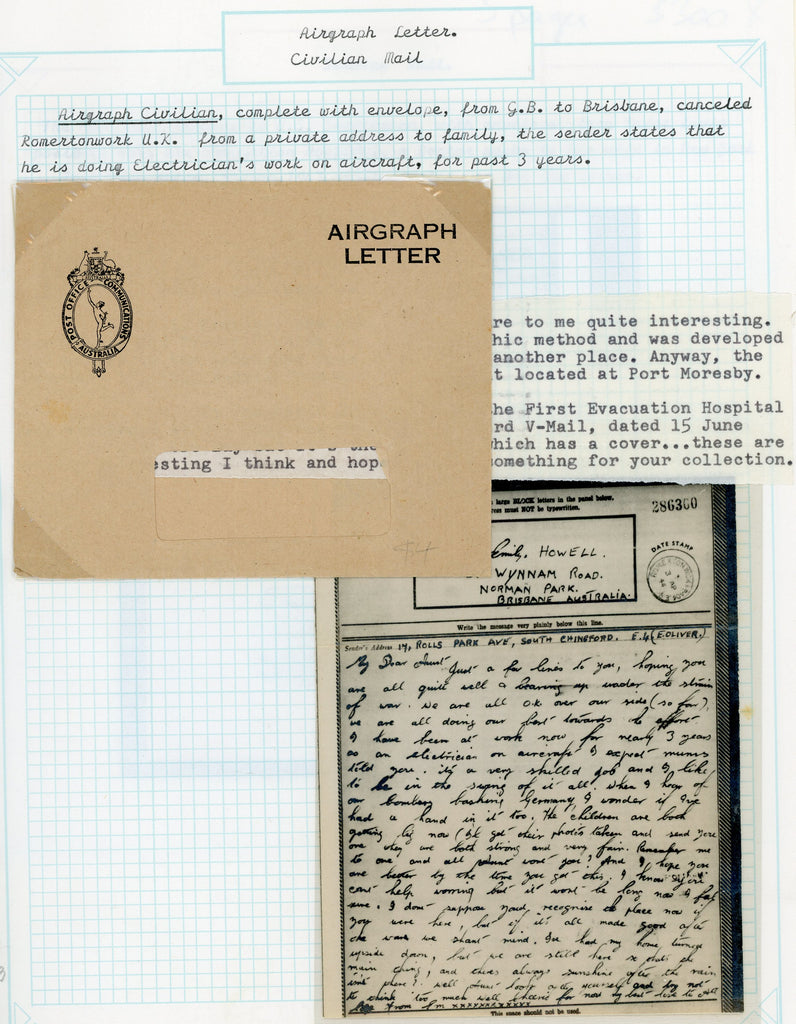 Airgraph Letter.
Civilian Mail
Airgraph Civilian, complete with envelope, from G.B. to Brisbane, canceled
Romertonwork U.K. from a private address to family, the sender states that
he is doing Electrician's work on aircraft, for past 3 years.
AIRGRAPH
LETTER
POST OFFICE COMMUNICATIONS
AUSTRALIA
re to me quite interesting.
hic method and was developed
another place. Anyway, the
t located at Port Moresby.
he First Evacuation Hospital
rd V-Mail, dated 15 June
which has a cover...these are
something for your collection.
esting I think and hop
$4
large BLOCK letters in the panel below.
ress must NOT be typewritten.
286360
DATE STAMP
Emily. HOWELL.
WYNNAM ROAD.
NORMAN PARK.
BRISBANE AUSTRALIA.
Write the message very plainly below this line.
Sender's Address 14, ROLLS PARK AVE, SOUTH CHINGFORD. E.4 (E.OLIVER.)
My Dear Aunt Just a few lines to you, hoping you
are all quite well & bearing up under the strain
of war. We are all O.K. over our side (so far),
we are all doing our best towards the effort.
I have been at work now for nearly 3 years
as an electrician on aircraft I expect mums
told you. its a very skilled job and I like
to be in the swing of it all. When I hear of
our bombers bashing Germany, I wonder if I've
had a hand in it too. The children are both
getting big now (I'll get their photos taken and send you
one) they are both strong and very fair. Remember me
to one and all won't you? And I hope you
are better by the time you get this. I know you
cant help worring but it wont be long now I feel
sure. I dont suppose you'd recognise the place now if
you were here, but if it's all made good after
the war we shant mind. I've had my home turned
upside down, but we are still here so thats the
main thing, and theres always sunshine after the rain
isn't there? Well Aunt look after yourself and try not
to think too much well cheerio for now my best love to all
from Em xxxxxxxxxxxxx
This space should not be used.